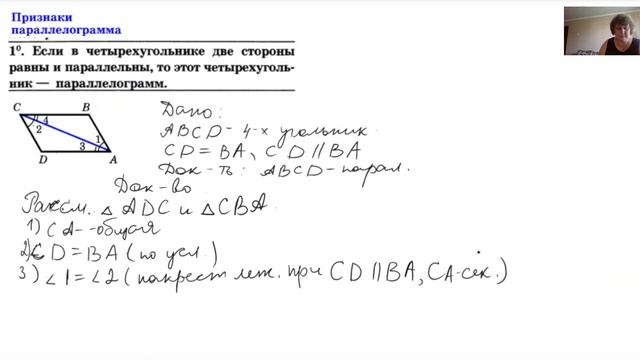 Признаки
параллелограмма
1⁰. Если в четырехугольнике две стороны
равны и параллельны, то этот четырехуголь-
ник — параллелограмм.
C B
4
2
1
3
D A
Дано:
ABCD - 4-х угольник
CD = BA, CD || BA
Док-ть: ABCD - парал.
Док-во
Рассм. △ ADC и △ CBA
1) CA - общая
2) CD = BA (по усл.)
3) ∠1 = ∠2 (накрест леж. при CD || BA, CA-сек.)